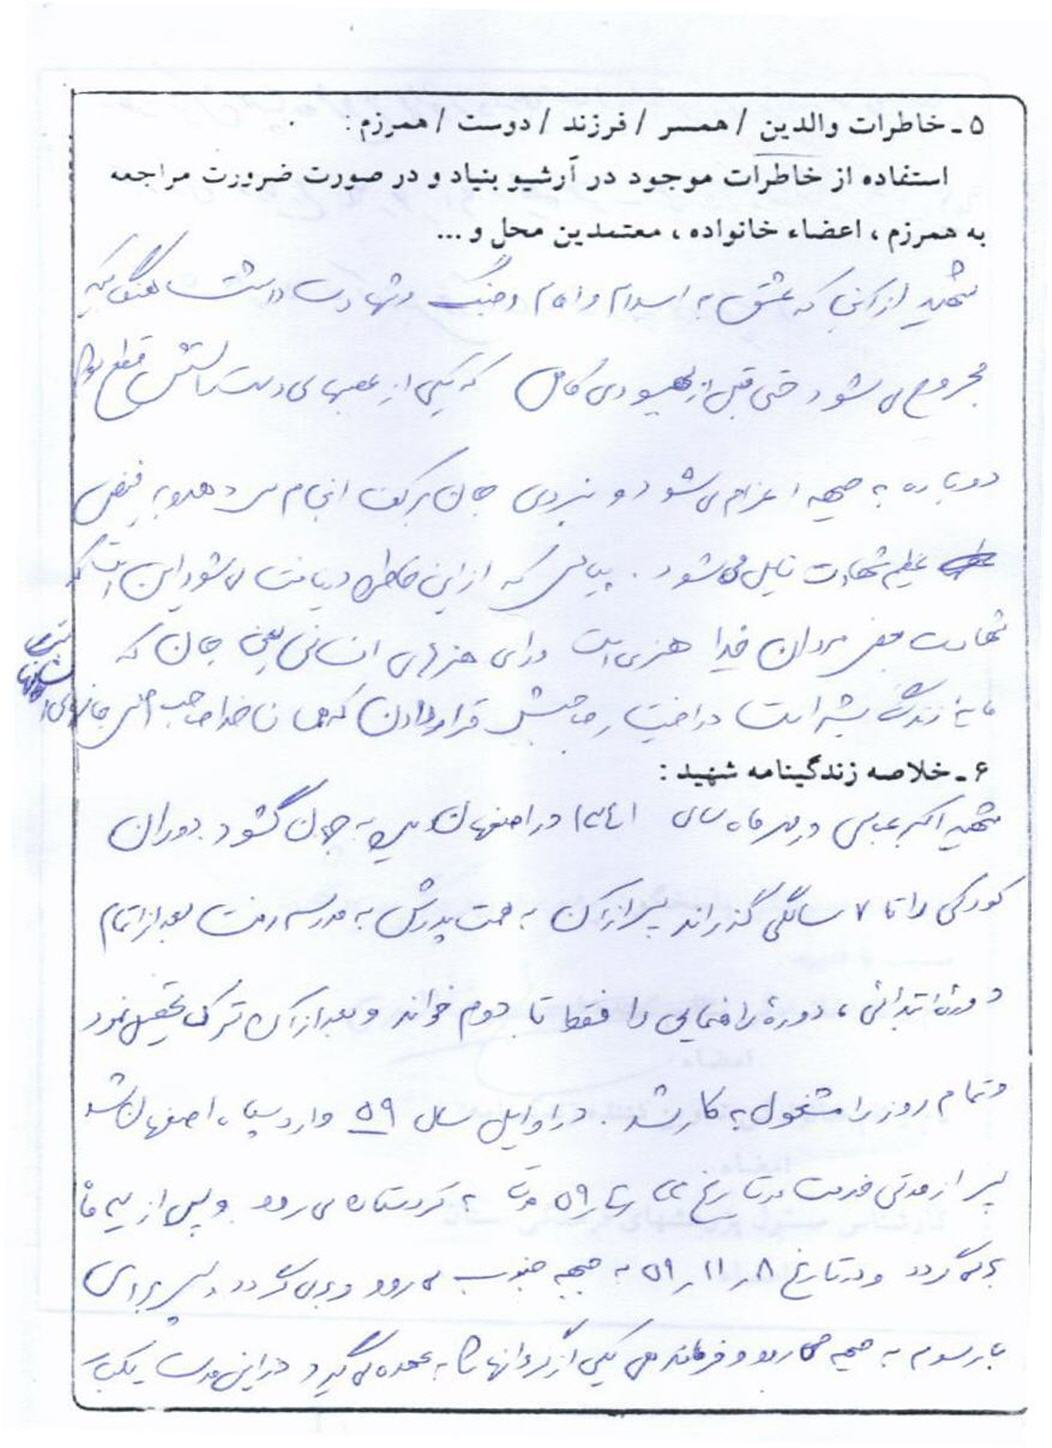 ۵ ـ خاطرات والدین / همسر / فرزند / دوست / همرزم :
استفاده از خاطرات موجود در آرشیو بنیاد و در صورت ضرورت مراجعه
به همرزم ، اعضاء خانواده ، معتمدین محل و ...
شهید از آنجا که عشق به اسلام و امام و جنگ و شهادت داشت هنگامیکه
مجروح می شود حتی قبل از بهبودی کامل که یکی از عصبهای دستش قطع بود
دوباره به جبهه اعزام می شود و نبردی جان برکف انجام می دهد و به فیض
عظیم شهادت نایل می شود . پیامی که از این خاطره دریافت می شود این است که
شهادت مردان خدا هنری است ورای هنرهای انسانی یعنی جان که
مایه زندگی بشر است در اختیار صاحبش قرار دادن که همانا خدا صاحب اصلی
۶ ـ خلاصه زندگینامه شهید :
شهید اکبر عباسی در مهر ماه سال ۱۳۴۱ در اصفهان به جهان گشود . دوران
کودکی را تا ۷ سالگی گذراند پس از آن به همت پدرش به مدرسه رفت بعد از اتمام
دورۀ ابتدائی ، دورۀ راهنمایی را فقط تا دوم خواند و بعد از آن ترک تحصیل نمود
و تمام روز را مشغول به کار شد . در اوایل سال ۵۹ وارد سپاه اصفهان شد
پس از مدتی خدمت در تاریخ به کردستان می رود و پس از سه ماه
برمی گردد و در تاریخ ۸ ر ۱۱ ر ۵۹ به جبهه جنوب می رود و برمی گردد . پس برای
بار سوم به جبهه می رود و فرماندهی یکی از گروانها را به عهده می گیرد در این مدت یکبار